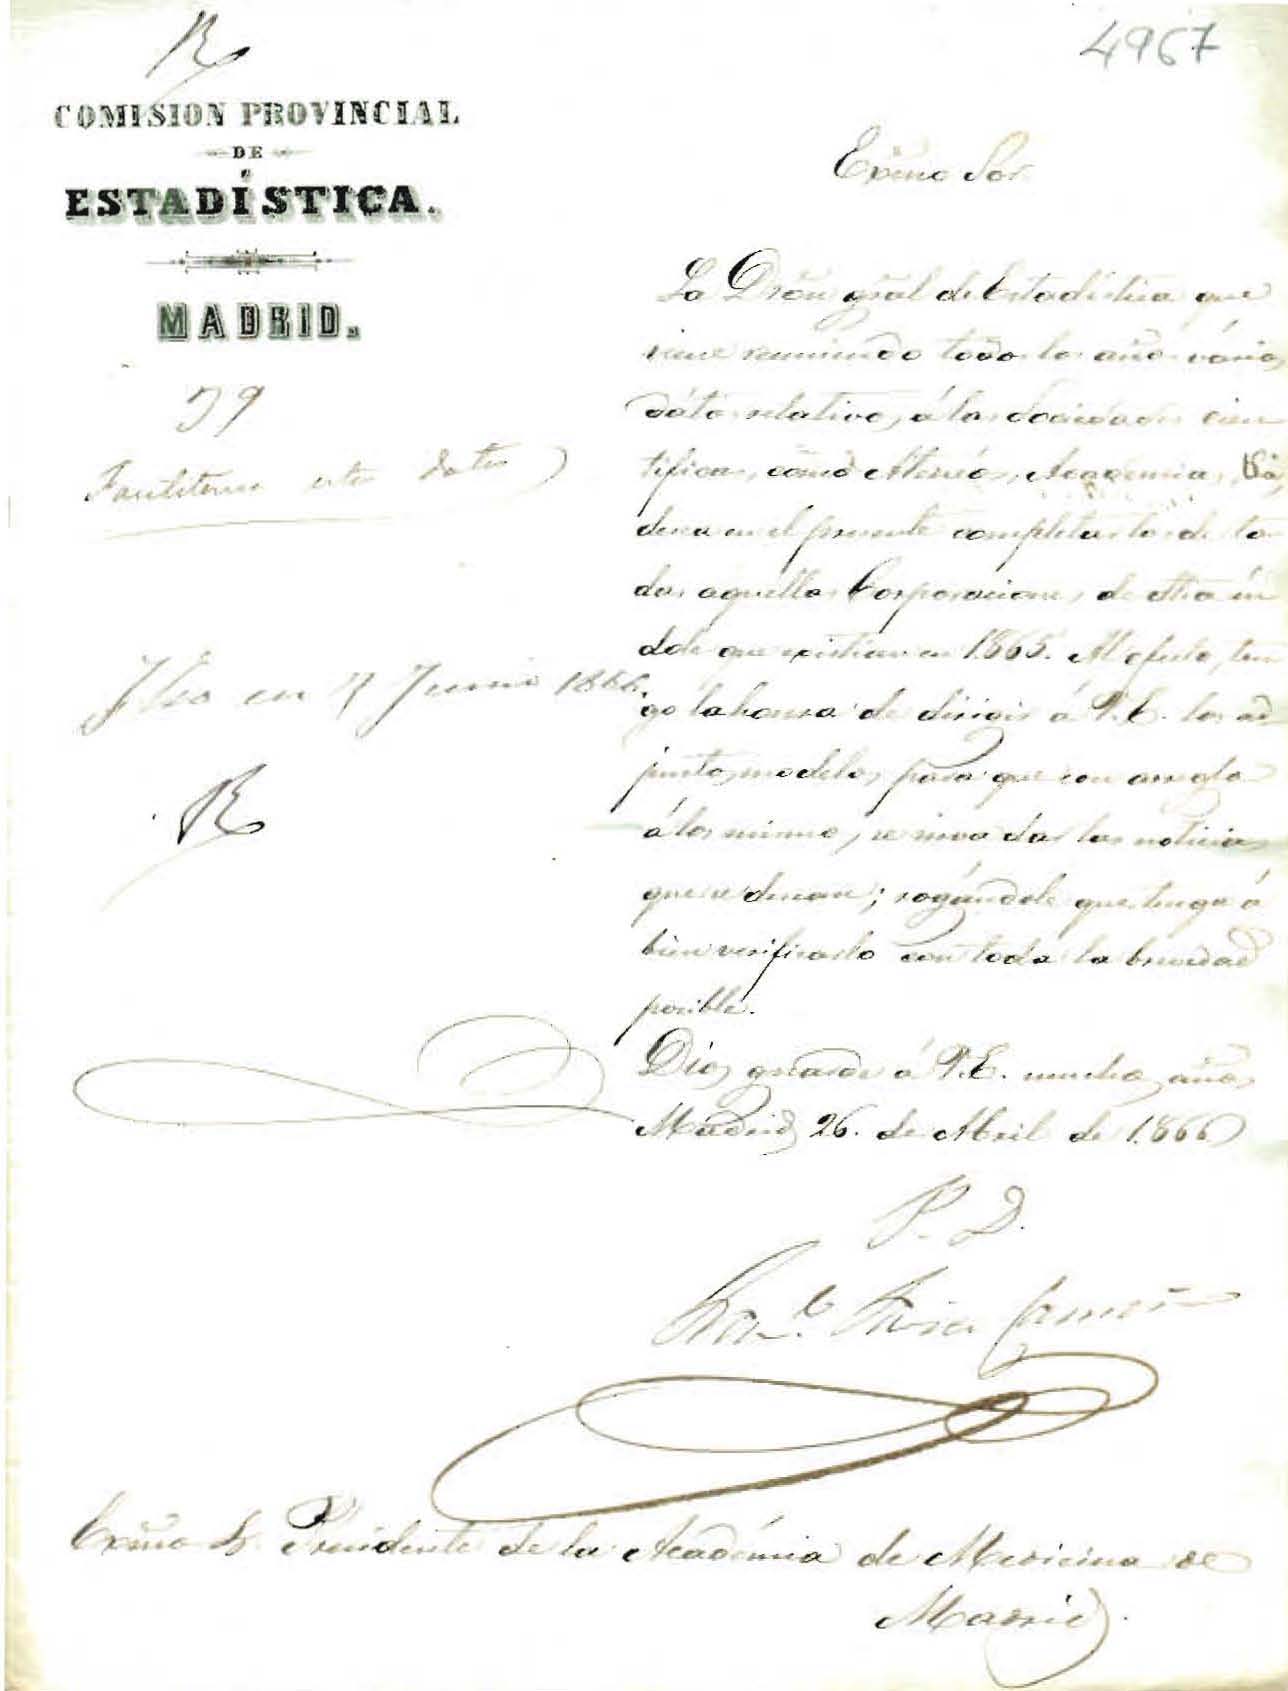 4967
COMISION PROVINCIAL
DE
ESTADÍSTICA.
MADRID.
Exmo Sor
La Dron gral de Estadística que
viene reuniendo todos los años vários
dátos relativos á las Sociedades cien
tíficas, como Atenéos, Academias, &a,
desea en el presente completar los de to
das aquellas Corporaciones de otra ín
dole que existian en 1865. Al efecto, ten
go la honra de dirigir á V.E. los ad
juntos modelos para que con arreglo
á los mismos, se sirva dar las noticias
que se desean; rogándole que tenga á
bien verificarlo con toda la brevedad
posible.
Dios guarde á V.E. muchos años
Madrid 26. de Abril de 1.866
P. D.
59
Facilitense estos datos
Fho en 7 Junio 1866.
Exmo Sr. Presidente de la Académia de Medicina de
Madrid.